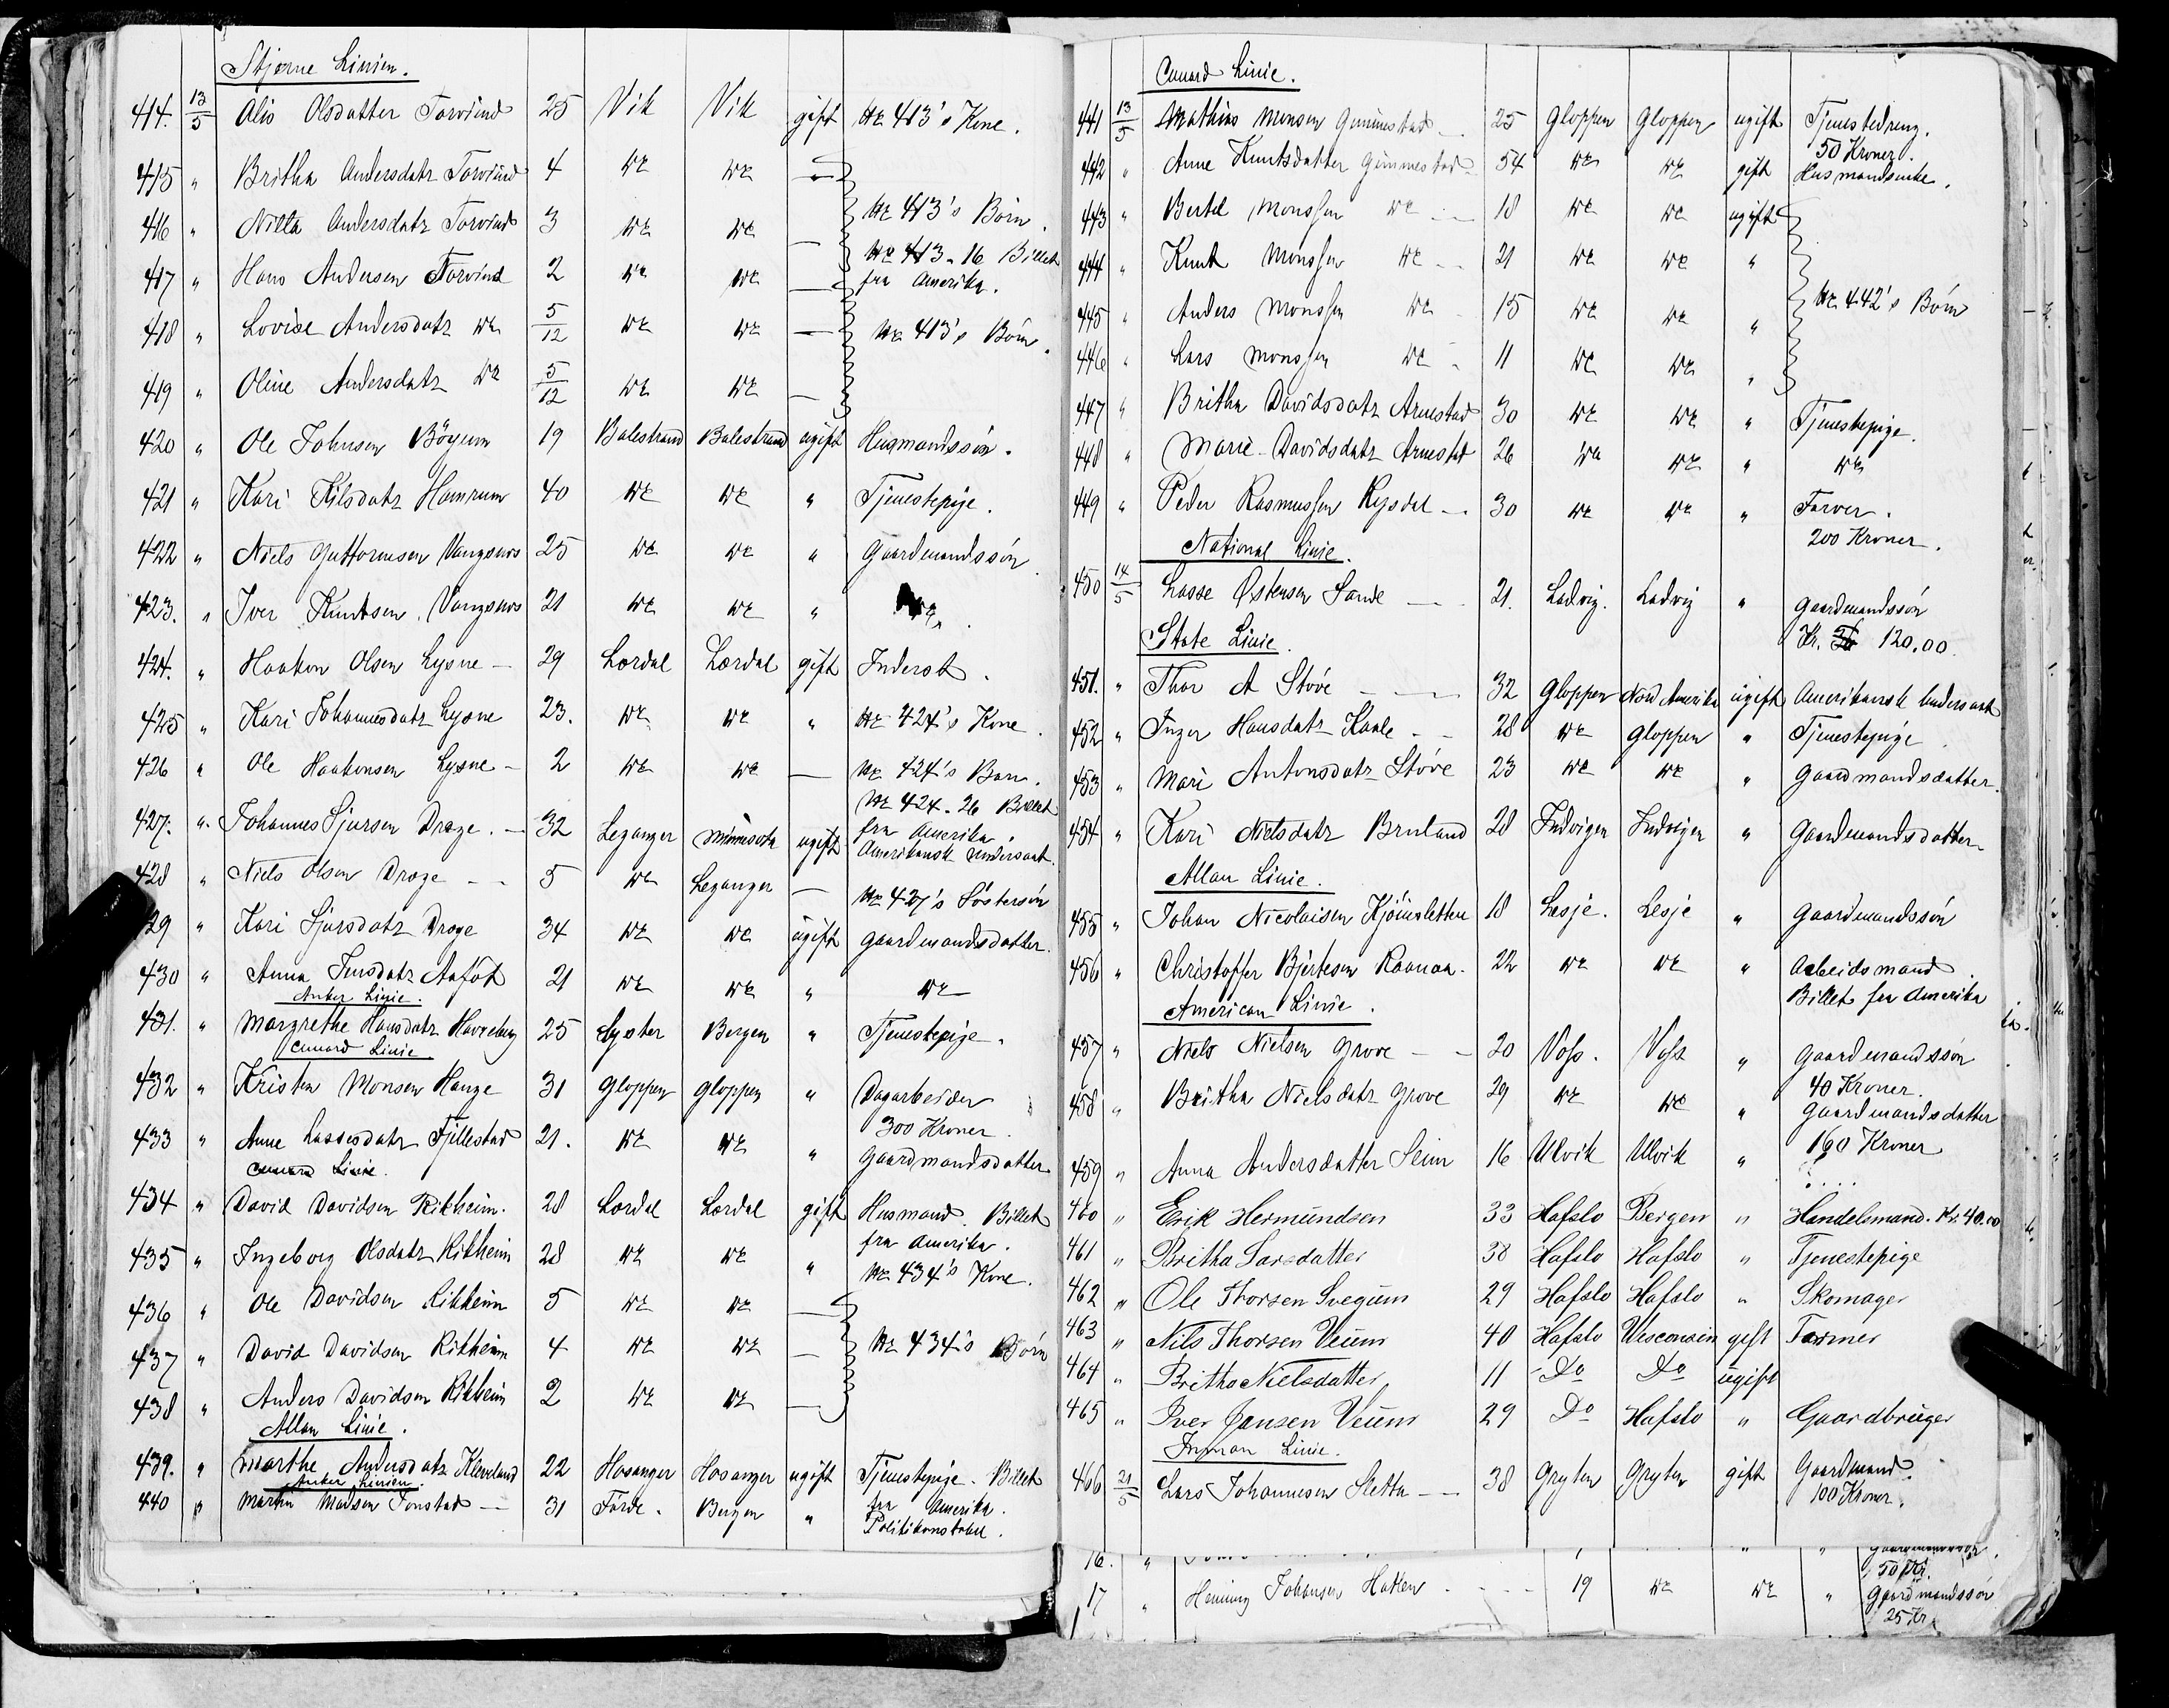 Stjerne Linien.
414. 13/5 Alis Olsdatter Torvind 25 Vik Vik gift No 413's Kone.
415 " Britha Andersdatr Torvind 4 do do —
416 " Nilla Andersdatr Torvind 3 do do — No 413's Børn.
417 " Hans Andersen Torvind 2 do do — No 413-16 Billet fra Amerika.
418 " Lovise Andersdatr do 5/12 do do — No 413's Børn.
419 " Oline Andersdatr do 5/12 do do —
420 " Ole Johnsen Böyum 19 Balestrand Balestrand ugift Husmandssön.
421 " Kari Nilsdatr Hamrum 40 do do " Tjenestepige.
422 " Niels Guttormsen Vangsnes 25 do do " Gaardmandssön
423. " Iver Knutsen Vangsnes 21 do do " do
424. " Haakon Olsen Lysne — 29 Lærdal Lærdal gift Inderst.
425 " Kari Johannesdatr Lysne 23. do do " No 424's Kone.
426 " Ole Haakonsen Lysne — 2 do do — No 424's Barn.
No 424-26 Billet
427. " Johannes Sjursen Drage. — 32 Leganger Minnesota ugift fra Amerika.
Amerikansk Undersaat.
428 " Niels Olsen Drage — 5 do Leganger — No 427's Söstersön
29 " Kari Sjursdatr Drage 34 do do ugift Gaardmandsdatter.
430 " Anna Jensdatr Aaföt 21 do do " do
Anker Linie.
431. " Margrethe Hansdatr 25 Lyster Bergen " Tjenestepige.
Cunard Linie
432 " Kristen Monsen Hauge 31 Gloppen Gloppen " Dagarbeider
300 Kroner.
433 " Anne Lassesdatr Fjellestad 21. do do " Gaardmandsdatter
Cunard Linie.
434 " David Davidsen Rikheim. 28 Lærdal Lærdal gift Husmand. Billet
fra Amerika.
435 " Ingeborg Olsdatr Rikheim 28 do do " No 434's Kone.
436 " Ole Davidsen Rikheim 5 do do —
437 " David Davidsen Rikheim 4 do do — No 434's Børn
438 " Anders Davidsen Rikheim 2 do do —
Allan Linie.
439. " Marthe Andersdatr Kleveland 22 Hosanger Hosanger ugift Tjenestepige. Billet
fra Amerika.
Anker Linien.
440 " Martin Madsen Tonstad — 31 Förde. Bergen " Politikonstabel.
Cunard Linie.
441 13/5 Mathias Monsen Gimmestad — 25 Gloppen Gloppen ugift Tjenestedreng.
50 Kroner.
442 " Anne Knutsdatter Gimmestad 54 do do gift Husmandsenke.
443 " Bertel Monssen do — 18 do do ugift
444 " Knut Monssen do — 21 do do "
445 " Anders Monssen do 15 do do " No 442's Børn
446 " Lars Monssen do 11 do do "
447 " Britha Davidsdatr Arnestad 30 do do " Tjenestepige.
448 " Marie Davidsdatr Arnestad 26 do do " do
449 " Peder Rasmussen Rysdal — 30 do do " Farver.
200 Kroner.
National Linie.
450 14/5 Lasse Østensen Sande — 21. Ladvig. Ladvig " Gaardmandssön
Kr. 120.00
State Linie.
451. " Thor A Störe — 32 Gloppen Nord Amerika ugift Amerikansk Undersaat
452 " Inger Hansdatr Kaale — 28 do Gloppen " Tjenestepige
453 " Mari Antonsdatr Störe 23 do do " Gaardmandsdatter.
454 " Kari Nielsdatr Bruland 28 Indvigen Indvigen " Gaardmandsdatter
Allan Linie.
455 " Johan Nicolaisen 18 Lesje. Lesje " Gaardmandssön
456 " Christoffer Bjertesen Raanaa. 22 do do " Arbeidsmand.
Billet fra Amerika
American Linie.
457 " Niels Nielsen Grove — 20 Voss. Voss " Gaardmandssön
40 Kroner.
458 " Britha Nielsdatr Grove 29 do do " Gaardmandsdatter
160 Kroner
459 " Anna Andersdatter Seim 16 Ulvik Ulvik " ....
460 " Erik Hermundsen 33 Hafslo Bergen " Handelsmand. Kr. 40.00
461 " Britha Larsdatter 38 Hafslo Hafslo " Tjenestepige
462 " Ole Thorsen Svegum 29 Hafslo Hafslo " Skomager
463 " Nils Thorsen Veum 40 Hafslo Wisconsin gift Farmer
464 " Britha Nielsdatter 11 Do Do ugift
465 " Iver Jensen Veum 29 Do Hafslo " Gaardbruger
Inman Linie.
466 21/5 Lars Johannesen Sletta — 38 Gryten Gryten gift Gaardmand.
100 Kroner.
16. "
50 Kr.
17 " Henning Johansen Hatlen 19 do do " Gaardmandssön
25 Kr